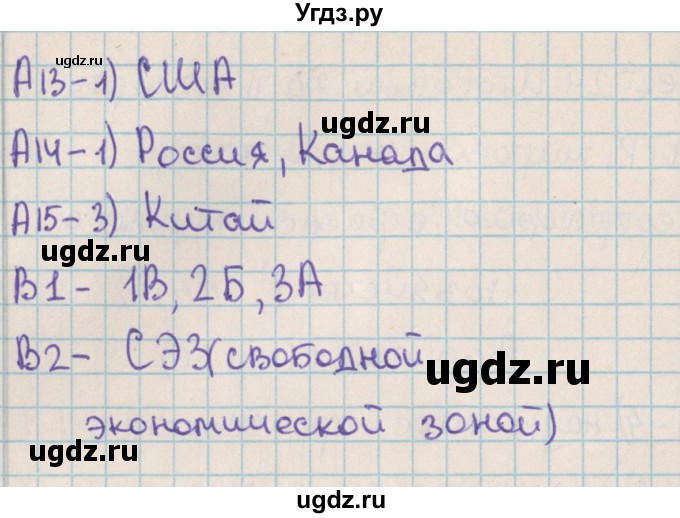 Угдз.ру
ugdz.ru
А13-1) США
ugdz.ru
ugdz.ru
А14-1) Россия, Канада
А15-3) Китай
ugdz.ru
ugdz.ru
В1- 1В, 2Б, 3А
В2- СЭЗ(свободной
ugdz.ru
экономической зоной)
ugdz.ru
ugdz.ru
ugdz.ru